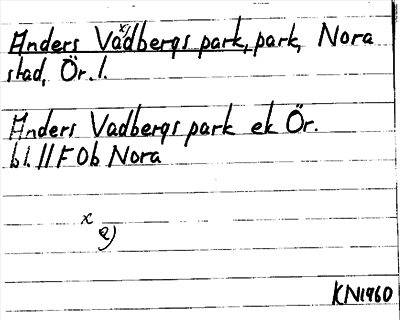 x)
Anders Vadbergs park, park, Nora
stad, Ör. l.
Anders Vadbergs park ek Ör.
bl. 11 F 0b Nora
x
a)
KN1960